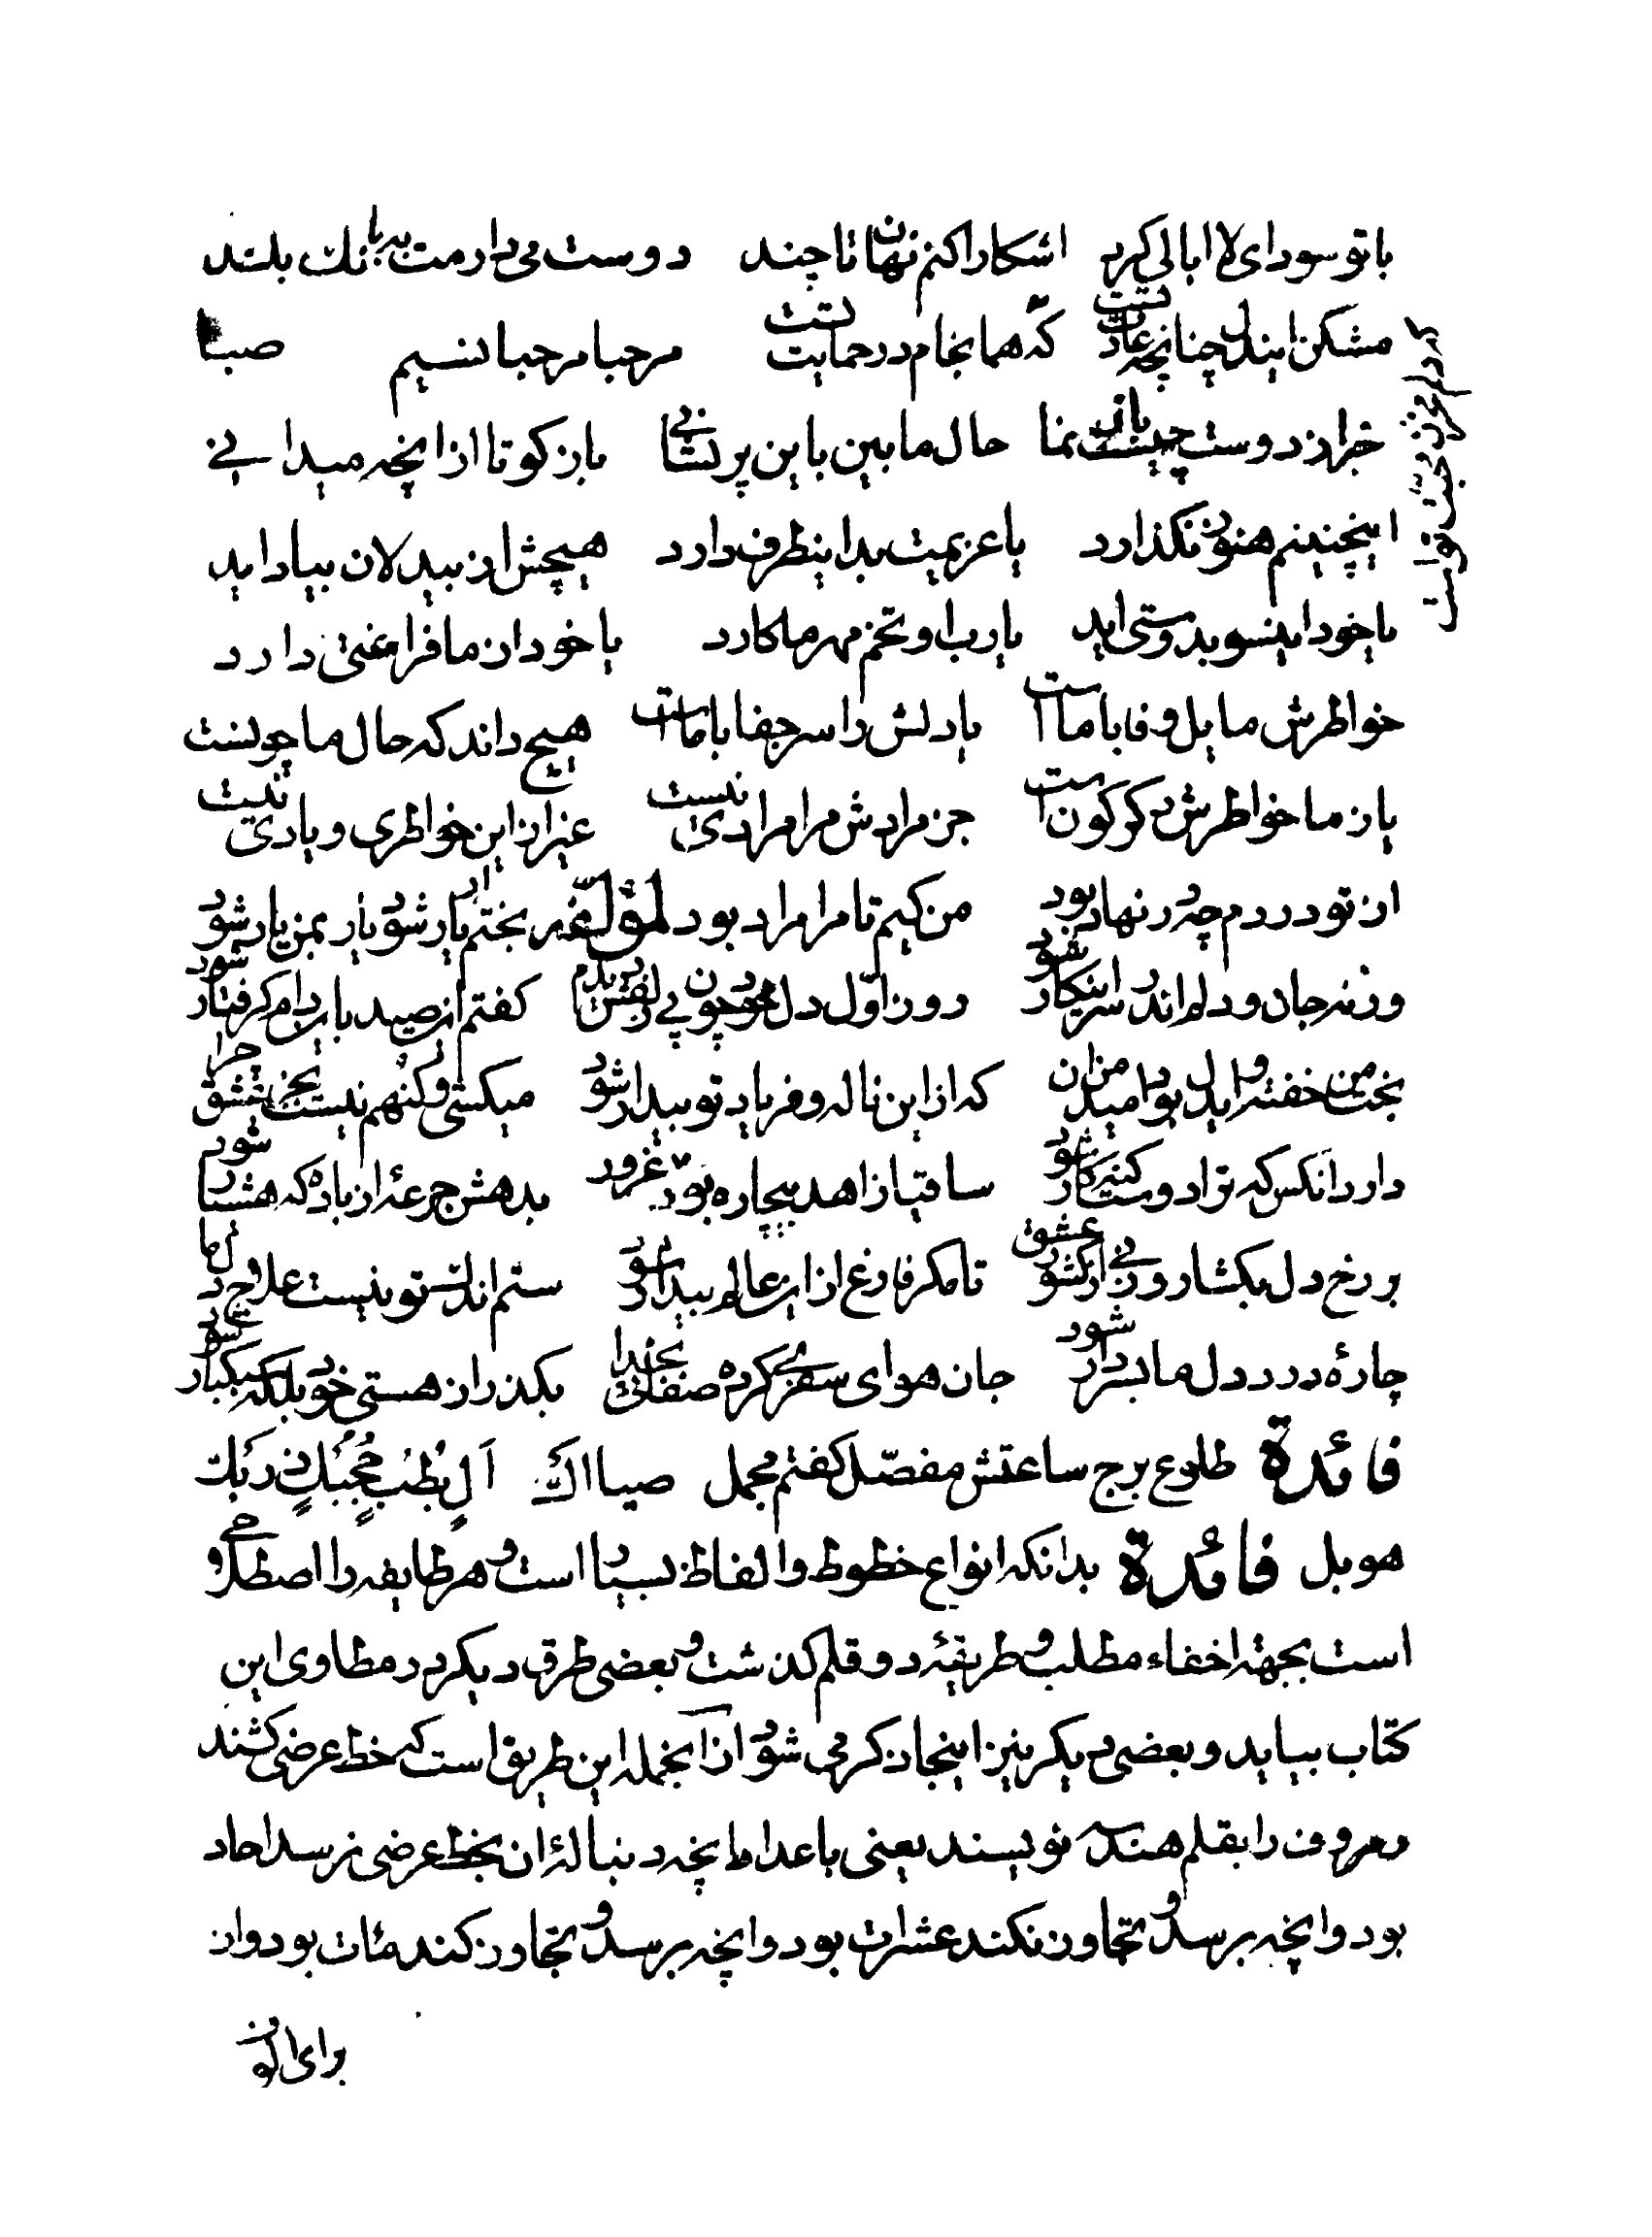 با تو سودای لا ابالی کرد اشکارا کنم نهان تا چند دوست می دارمت ببانك بلند
مشکن ایندل چنانچه عادتتست که هما نجام در حمایتتست مرحبا مرحبا نسیم صبا
خبر از دوست چیست بازنما حال ما بین باین پریشانی باز کو تا از انچه میدانی
اینچنینم هنوز نکذارد یا عزیمت بدا ینطرف دارد هیچش از بیدلان بیاد اید
یا خود اینسو بدوستی اید یا رب او تخم مهر ما کارد یا خود از ما فراغتی دارد
خواطرش مایل وفا با ماست یا دلش را سر جفا با ماست هیچ داند که حال ما چونست
یا ز ما خواطرش دکر کون است جز مرادش مرا مرادی نیست غیر از این خواطری و یادی نیست
از تو در دم چه در نهاد بود من کیم تا مرا مراد بود لمؤلفه بختم ار یار شود یار بمن یار شود
ورنه جان و دلم اندر سر اینکار شود روز اول دل خود چون پی زلفش دیدم کفتم از صید باین دام کرفتار شود
بخت من خفته و ایدل بود امید من ان که از این ناله و فریاد تو بیدار شود میکشی و کنهم نیست بجز عشق چرا
دارد انکس که ترا دوست کنه کار شود ساقیا زاهد بیچاره بود غرور بدهش جرعهٔ از باده که هشیار شود
بر رخ دل بکشا روزنی از کشور عشق تا مکر فارغ از این عالم بیدار شود ستم اندلت تو نیست علاج دل ما
چارهٔ درد دل ما بسر دار شود جان هوای سفری کرده صفائی بخدا بکذر از هستی خود بلکه سبکبار شود
فائدة طلوع برج ساعتش مفصّل کفتم مجمل صیااك آل بُطُب مجببك دز ربك
هوبل فائدة بدانکه انواع خطوط و الفاظ بسیار است و هر طایفه را اصطلاحی
است بجهة اخفاء مطلب و طریقهٔ دو قلم کذشت و بعضی طرق دیکر در مطاوی این
کتاب بیاید و بعضی دیکر نیز اینجا ذکر می شود از آنجمله این طریق است که خط عرضی کشند
و حروف را بقلم هندسه نویسند یعنی با عداد اما انچه دنبالهٔ ان بخط عرضی نرسد احاد
بود و انچه برسد و تجاوز نکند عشرات بود و انچه برسد و تجاوز کند مئات بود و از
برای الوف